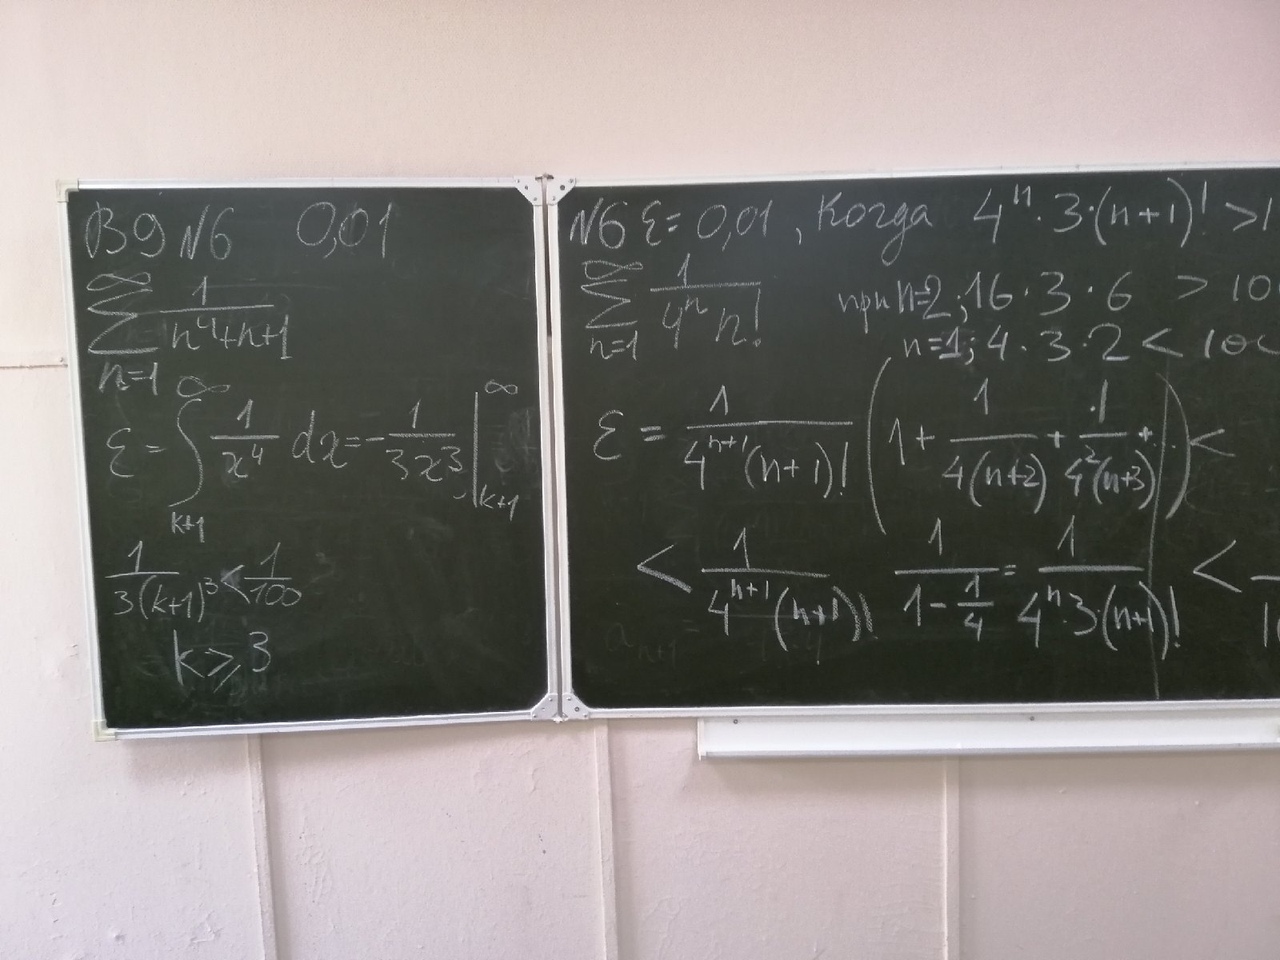 В9 №6 0,01
∞
∑ 1/(n⁴+n+1)
n=1
ε = ∫_{k+1}^{∞} 1/x⁴ dx = -1/(3x³) |_{k+1}^{∞}
1/(3(k+1)³) < 1/100
k ⩾ 3
№6 ε = 0,01, Когда 4ⁿ·3·(n+1)! >1
∞
∑ 1/(4ⁿ n!)
n=1
при n=2; 16·3·6 > 100
n=1; 4·3·2 < 100
ε = 1/(4ⁿ⁺¹(n+1)!) (1 + 1/(4(n+2)) + 1/(4²(n+3)) + ..) <
< 1/(4ⁿ⁺¹(n+1)!) 1/(1-1/4) = 1/(4ⁿ·3·(n+1)!) <